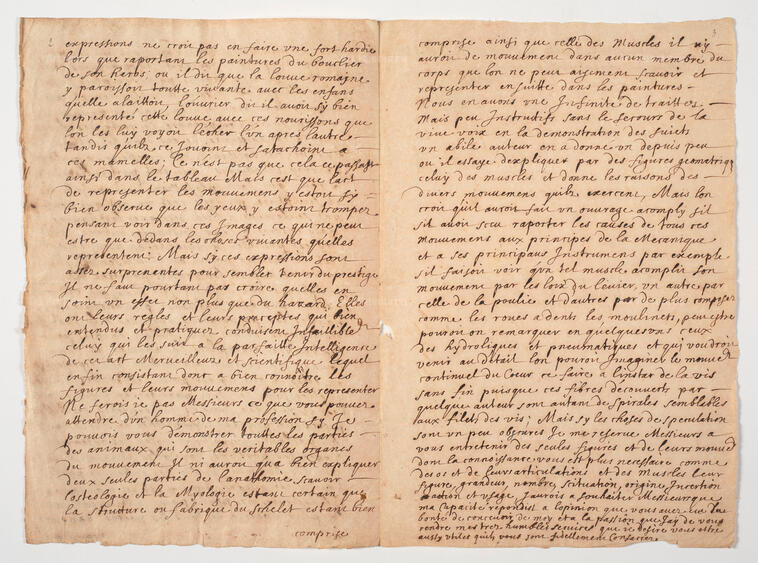 2
expressions ne croit pas en faire vne fort hardie
lors que raportant les paintures du bouclier
de son heros; ou il dit que la louue romaine
y paroissoit toutte viuante auec les enfans
quelle alaittoit, l'ouurier dit il auoit sy bien
representé cette louue auec ces nourissons que
lon les luy voyoit lecher l'vn apres lautre
tandis quilz ce Jouoint et satachoint a
ces mamelles; ce n'est pas que cela ce passast
ainsi dans le tableau Mais cest que lart
de representer les mouuemens y estoit sy
bien obserué que les yeux y estoint tromper
pensant voir dans ces Images ce qui ne peut
estre que dedans les choses viuantes quelles
representent; Mais sy ces expressions sont
assez surprenentes pour sembler tenir du prestige
Il ne faut pourtant pas croire quelles en
soint vn effet non plus que du hazard, Elles
ont leurs regles et leurs preceptes qui bien
entendus et pratiquez conduisent Infaillible
celuy qui les suit a la parfaitte Intelligense
de cet art Merueilleux et scientifique lequel
enfin consistant donc a bien connoitre les
figures et leurs mouuemens pour les representer
Ne serois ie pas Messieurs ce que vous pouuez
attendre d'vn homme de ma profession sy Je
pouuois vous démonstrer touttes les parties
des animaux qui sont les veritables organes
du mouuement Il ni auroit qua bien expliquer
deux seules parties de l'anathomie scauoir
losteologie et la Myologie estant certain que
la structure ou fabrique du schelet estant bien
comprise
3
comprise ainsi que celle des Muscles il n'y
auroit de mouuement dans aucun membre du
corps que lon ne peut aisement scauoir et
representer ensuitte dans les paintures
Nous en auons vne Infinite de traittez
Mais peu Instrutifs sans le secours de la
viue voix et la demonstration des sujets
vn abile auteur en a donne vn depuis peu
ou il essaye dexpliquer par des figures geometriq
celuy des muscles et donne les raisons des
diuers mouuemens quilz exercent, Mais lon
croit quil auroit fait vn ouurage acomply sil
sit auoit sceu raporter les causes de tous ces
mouuemens aux principes de la Mecanique
et a ses principaux Instrumens par exemple
sil faisoit voir qun tel muscle acomplit son
mouuement par les loix du leuier, vn autre par
celle de la poulie et dautres par de plus composez
comme les roues a dents les moulinets, peut estre
pouroit on remarquer en quelquesuns ceux
des hydroliques et pneumatiques et qui voudroit
venir au detail lon pouroit Imaginer le mouuemt
continuel du Coeur ce faire a l'instar de la vis
sans fin puisque ces fibres decouverts par
quelque auteur sont autant de spirales semblables
aux filets des vis; Mais sy les choses de speculation
sont vn peu obscures Je me reserue Messieurs a
vous entretenir des seules figures et de leurs mouuemt
dont la connoissance vous est plus necessaire comme
des os et de leurs articulations et des muscles leur
figure, grandeur, nombre, scituation, origine, Insertion
action et vsage, Jaurois a souhaiter Messieurs que
ma Capacité repondit a lopinion que vous auez eu la
bonté de conceuoir de moy et a la passion que Jay de vous
rendre mes tres humbles seruices que ie desire vous estre
aussy vtiles quilz vous sont fidellement Consacrez